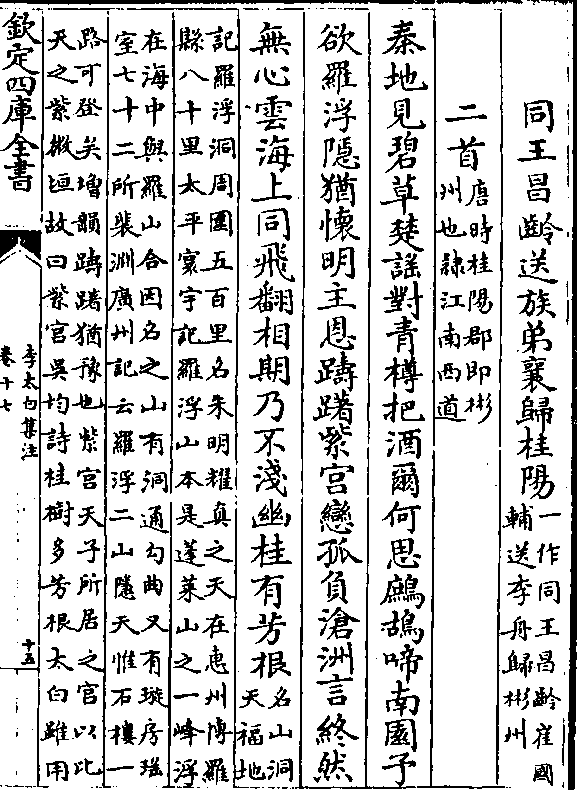 同王昌齡送族弟襄歸桂陽一作同王昌齡崔國
輔送李舟歸彬州
二首唐時桂陽郡即彬
州也隷江南西道
秦地見碧草楚謡對青樽把酒爾何思鷓鴣啼南園予
欲羅浮隱猶懷明主恩躊躇紫宫戀孤負滄洲言終然
無心雲海上同飛翻相期乃不淺幽桂有芳根名山洞
天福地
記羅浮洞周圍五百里名朱明耀真之天在惠州博羅
縣八十里太平寰宇記羅浮山本是蓬萊山之一峰浮
在海中與羅山合因名之山有洞通勾曲又有璇房瑶
室七十二所裴淵廣州記云羅浮二山隱天惟石樓一
路可登矣增韻躊躇猶豫也紫宫天子所居之宫以比
天之紫微垣故曰紫宫吳均詩桂樹多芳根太白雖用
欽定四庫全書
李太白集注
卷十七
十五